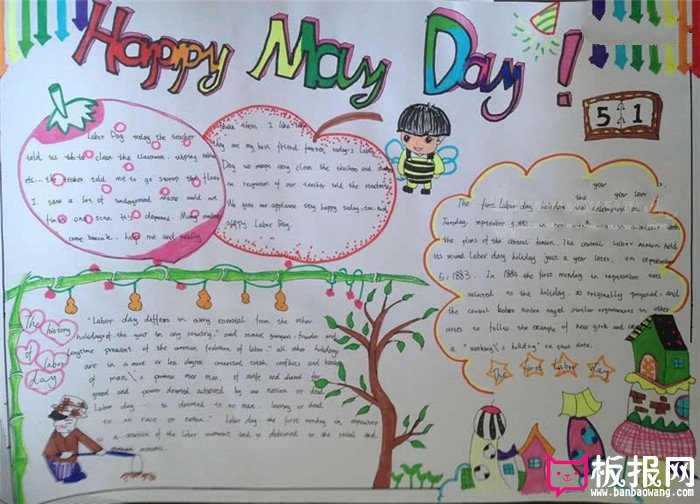 Happy May Day!
5 1
Labor Day today the teacher
told us to clean the classroom, wiping table
etc... the teacher told me to go sweep the floor
I saw a lot of underground waste could not
come back. help me and really
them. I like
they are my best friend forever, today's Labor
Day we very clean the teacher and
in recognition of our teacher told the
We give our appliance very happy today
Happy Labor Day.
year year later.
The first labor day holiday was celebrated on
Tuesday, september 5, 1882, in
the plans of the central union. The central Labor union held
its second Labor day holiday just a year later, on september
5, 1883. In 1884 the first monday in september was
selected as the holiday, as originally proposal, and
the central labor union urged similar organizations in other
cities to follow the example of new york and
a "working holiday" on that date.
The first Labor day
The history
of labor
day
"Labor day differs in every essential from the other
holidays of the year in any country," said samuel gompers, founder and
longtime president of the american federation of labor. "all other holidays
are in a more or less degree connected with conflicts and battles
of man's prowess over man, of strife and discord for
greed and power, achieved by one nation or
Labor day... is devoted to no man, living or dead,
to no race or nation." Labor day, the first monday in september
is a creation of the labor movement and is dedicated to the social and
economic
板报网
www.banbaowang.com